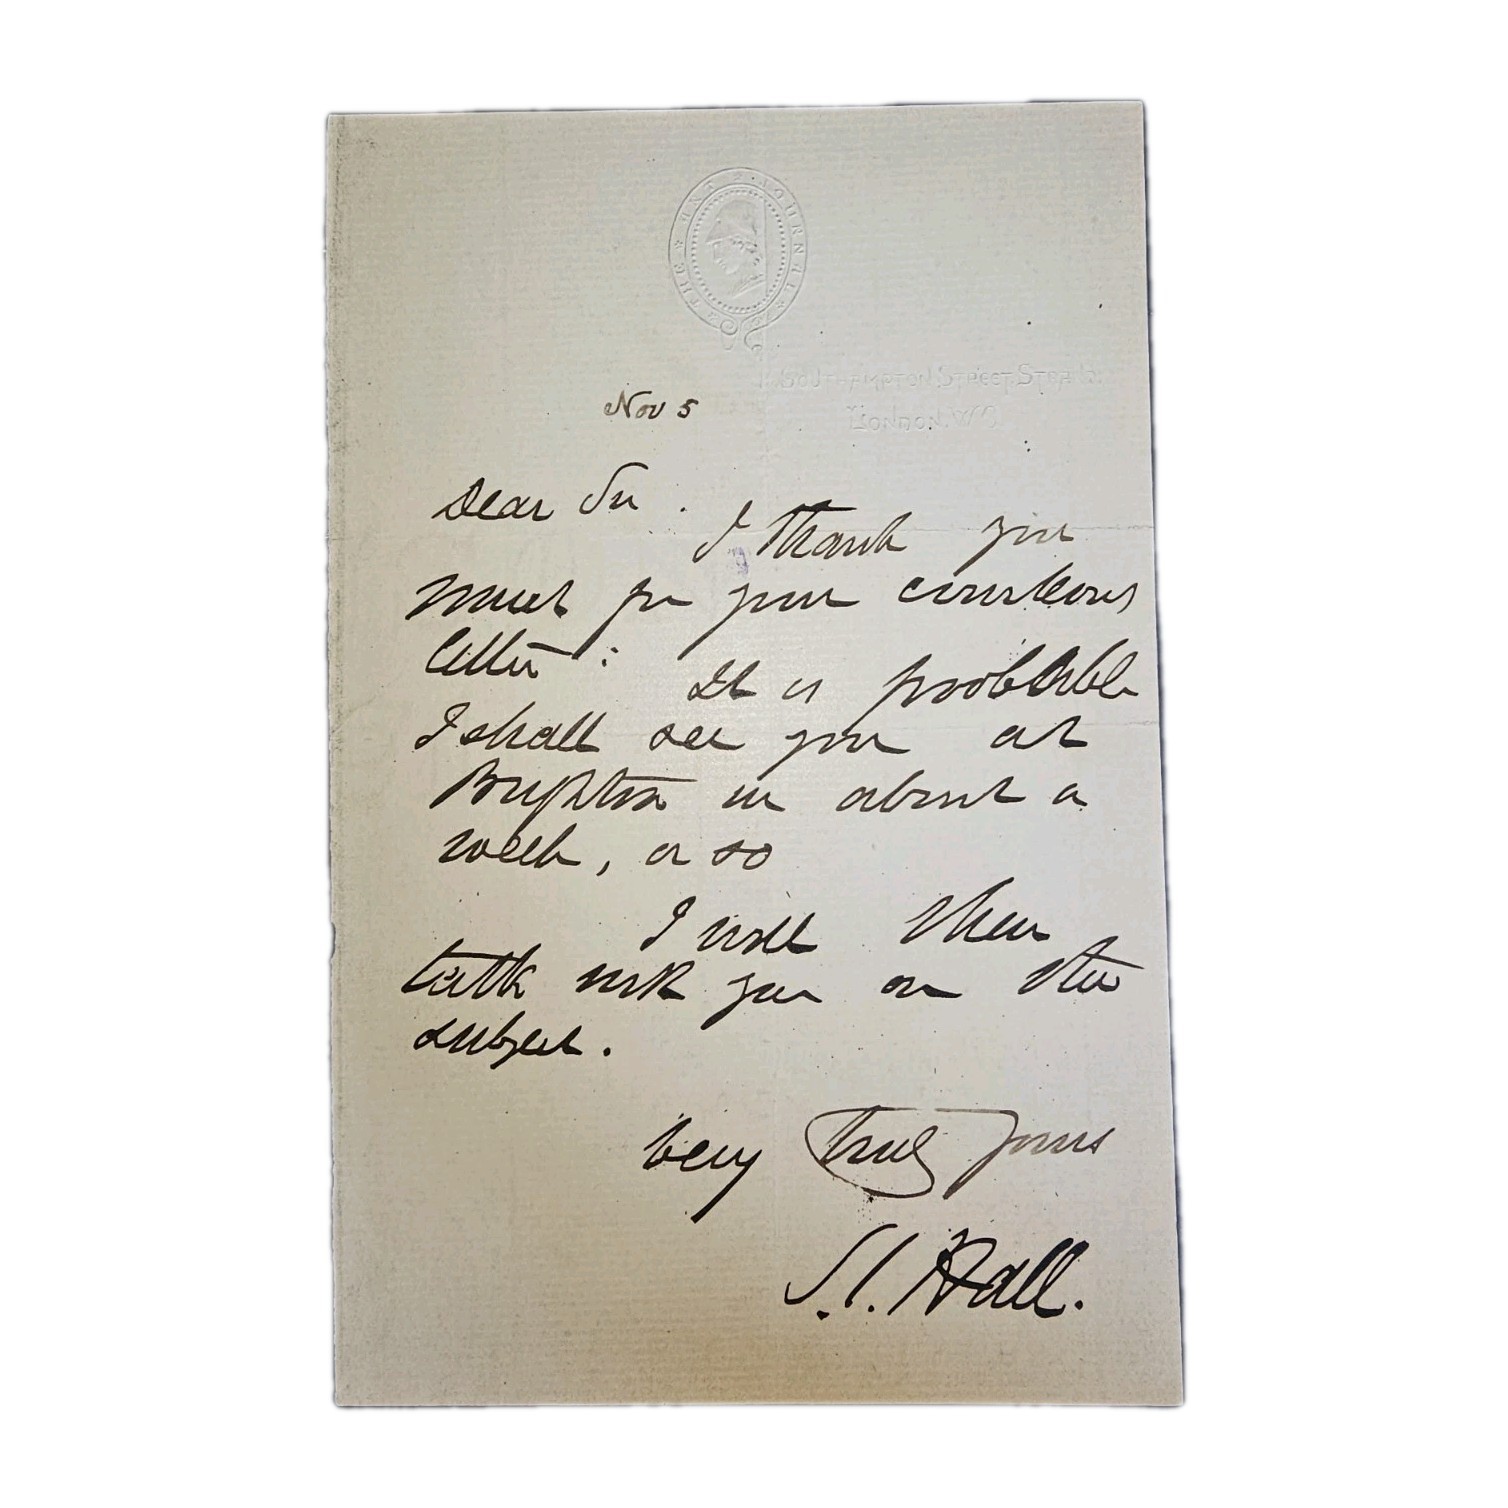 THE ART JOURNAL
SOUTHAMPTON STREET, STRAND.
LONDON. W.C.
Nov 5
Dear Sir.
I thank you
much for your courteous
letter: It is probable
I shall see you at
Brighton in about a
week, or so
I will then
talk with you on the
subject.
Very Truly Yours
S. C. Hall.